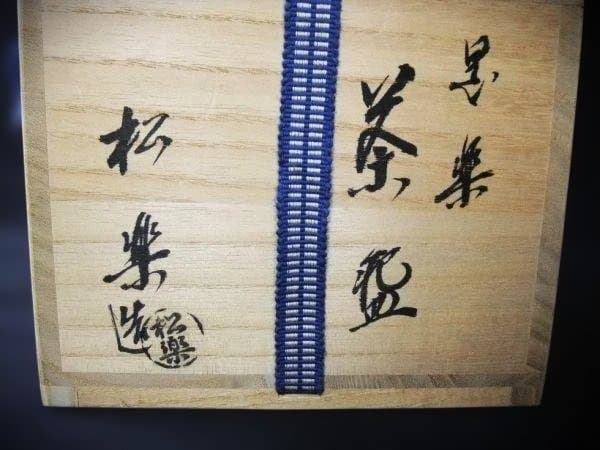 黒楽
茶盌
松楽造
松楽